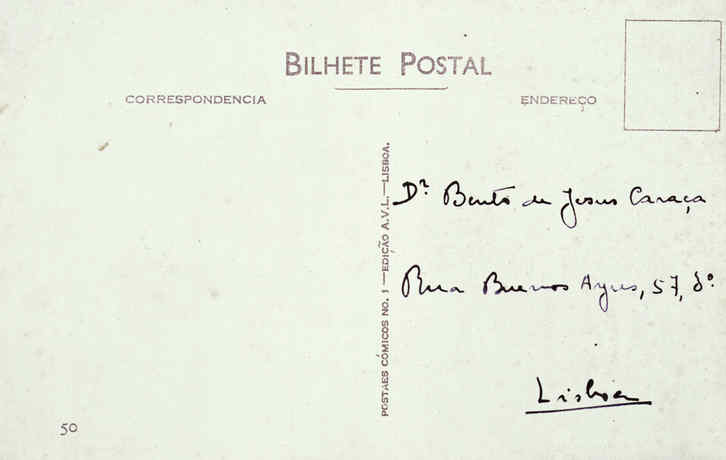 BILHETE POSTAL
CORRESPONDENCIA
ENDEREÇO
POSTAES CÓMICOS NO. 1 — EDIÇÃO A.V.L. — LISBOA.
Dr. Bento de Jesus Caraça
Rua Buenos Ayres, 57, 
Lisboa
50